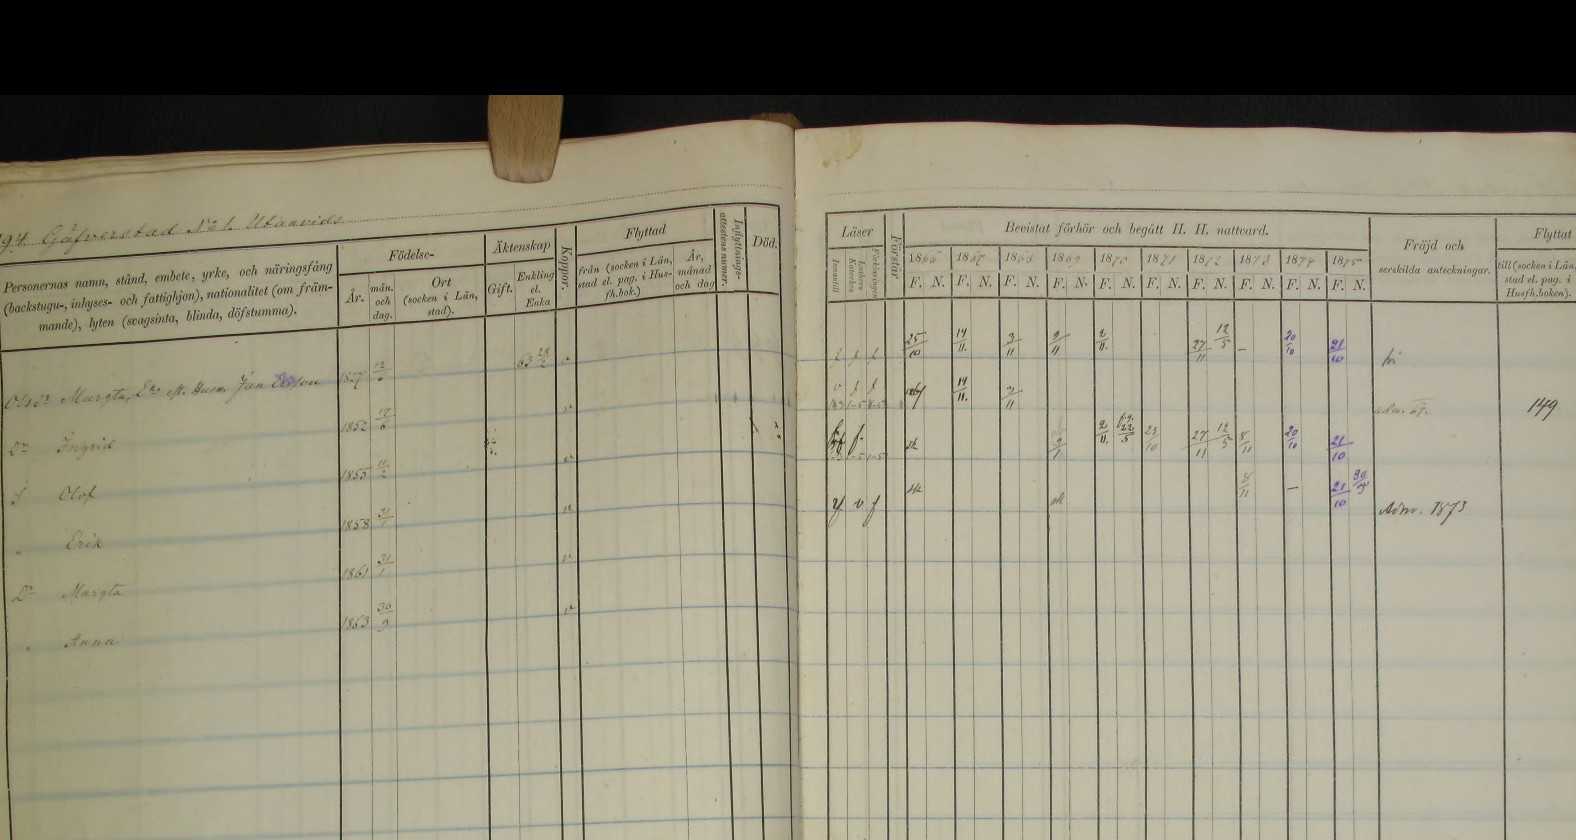 Gåfverstad No 1. Utanvids
Personernas namn, stånd, embete, yrke, och näringsfång
(backstugu-, inhyses- och fattighjon), nationalitet (om främ-
mande), lyten (svagsinta, blinda, döfstumma).
Födelse-
År.
mån.
och
dag.
Ort
(socken i Län,
stad).
Äktenskap
Gift.
Enkling
el.
Enka
Koppor.
Flyttad
från (socken i Län,
stad el. pag. i Hus-
fh.bok.)
År,
månad
och dag
Inflyttnings-
attestens numer.
Död.
Margta, Dr eft. Husm. Jan Ersson 1827 63
Ingrid 1852 17/6
Olof 1855 11/2
Erik 1858 31/1
Margta 1861 31/1
Anna 1863 30/9
Läser
Innantill
Luthers
Kateches
Förklaringen
Förstår.
Bevistat förhör och begått H. H. nattvard.
1866 1867 1868 1869 1870 1871 1872 1873 1874 1875
F. N. F. N. F. N. F. N. F. N. F. N. F. N. F. N. F. N. F. N.
Fräjd och
serskilda anteckningar.
Flyttat
till (socken i Län,
stad el. pag. i
Husfh.boken).
25/10 14/11. 3/11 9/11 2/11. 27/11 12/5 – 20/10 21/10
14/11. 3/11 149
2/11. 22/5 23/10 27/11 12/5 8/11 20/10 21/10
8/11 – 21/10 30/5
Adm. 1873